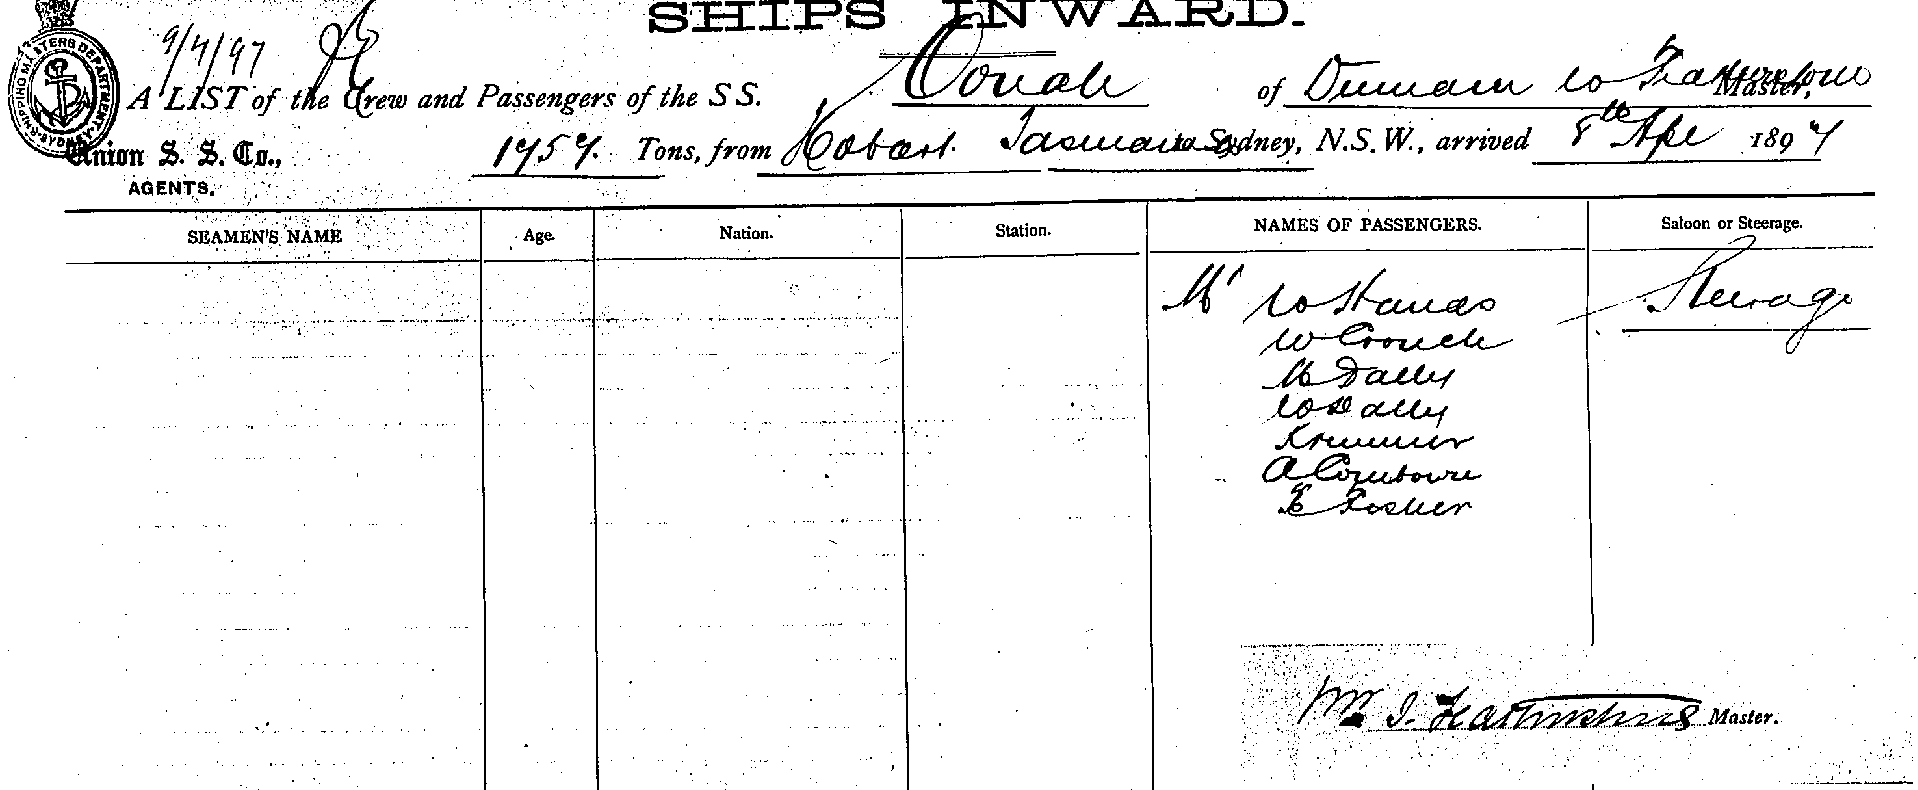 SHIPS INWARD.
9/4/97
A LIST of the Crew and Passengers of the SS. Oonah of Dunedin W Featherstone Master,
Union S. S. Co., 1757. Tons, from Hobart. Tasmania to Sydney, N.S.W., arrived 8th Apl 1897
AGENTS.
SEAMEN'S NAME Age. Nation. Station. NAMES OF PASSENGERS. Saloon or Steerage.
Mr W Hands Steerage
W Crouch
M Dally
W Dally
A
E Fosher
Wm J. Featherstone Master.